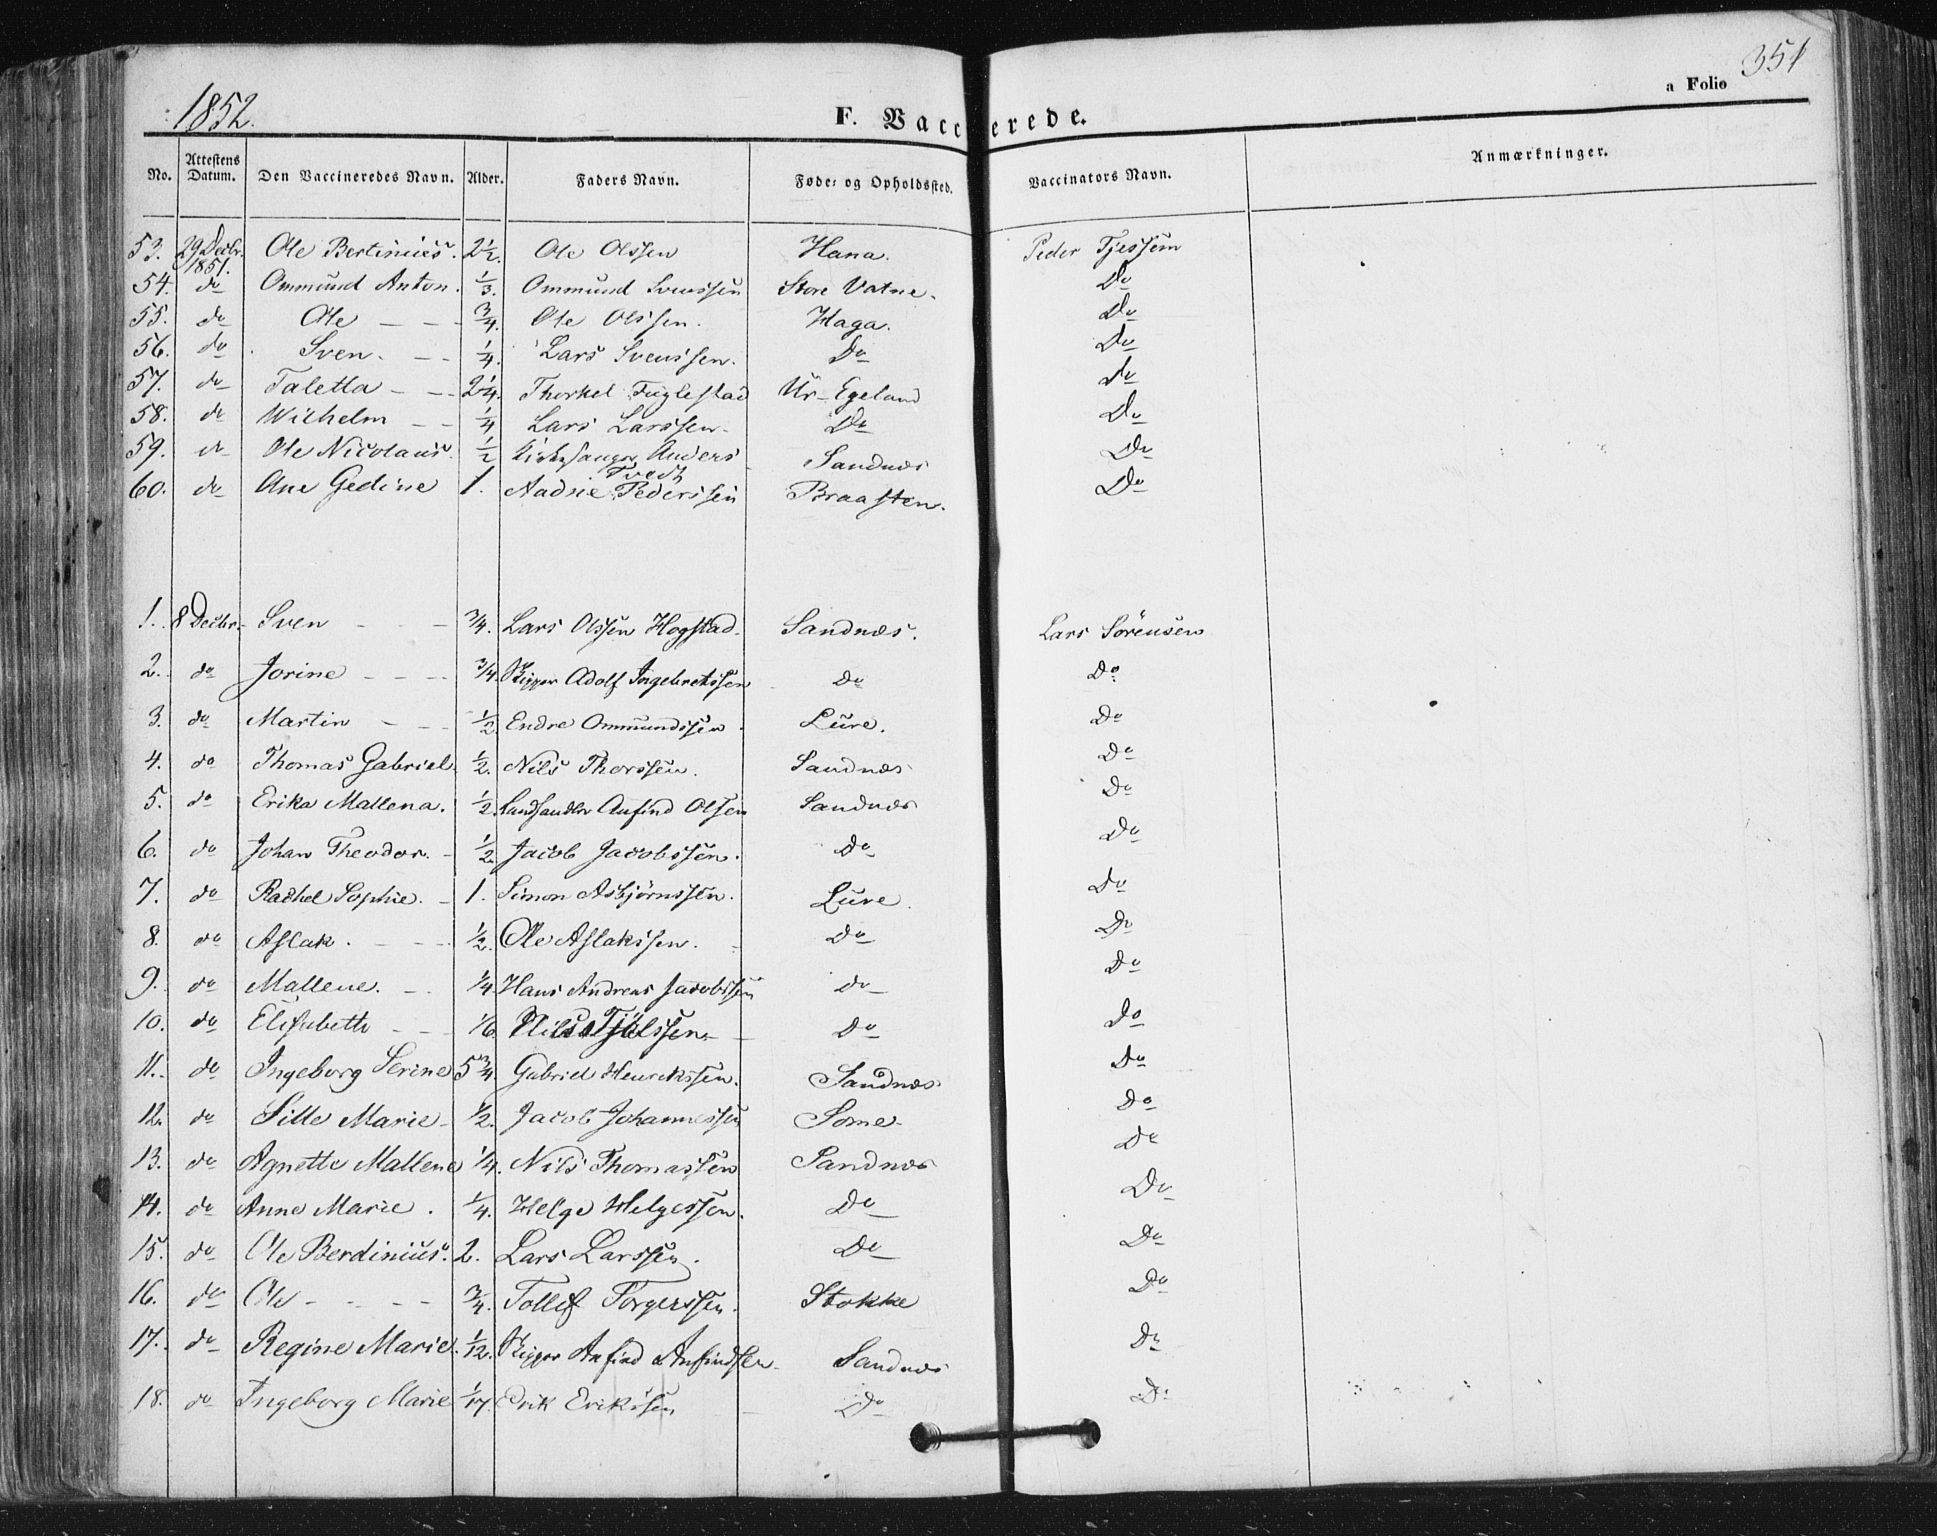 1852.
F. Vaccinerede.
a Folio 351
No. Attestens Datum. Den Vaccineredes Navn. Alder. Faders Navn. Føde- og Opholdssted. Vaccinators Navn. Anmærkninger.
53. 29 Decbr. 1851. Ole Bertinius. 2 1/2. Ole Olssen Hana. Peder Tjessem
54. do Ommund Anton. 1/3. Ommund Svenssen Store Vatne. Do
55. do Ole 3/4. Ole Olssen. Haga. Do
56. do Sven. 1/4. Lars Svenssen. Do Do
57. do Taletta 2 1/4. Thorkel Fuglestad Ur-Egeland Do
58. do Wilhelm 1/4 Lars Larssen. Do Do
59. do Ole Nicolaus 1/2 Kirkesanger Anders Tvedt Sandnæs Do
60. do Ane Gedine 1. Aadne Pederssen Braasten. Do
1. 8 Decbr. Sven 3/4. Lars Olssen Hogstad. Sandnæs. Lars Sörensen
2. do Jorine 3/4. Skipper Adolf Ingebretssen Do Do
3. do Martin 1/2 Endre Ommundssen. Lure. Do
4. do Thomas Gabriel 1/2. Nils Thorssen. Sandnæs Do
5. do Erika Mallena. 1/2. Landhandler Anfind Olsen Sandnæs Do
6. do Johan Theodor. 1/2. Jacob Jacobssen. Do Do
7. do Rachel Sophie. 1. Simon Asbjörnssen. Lure. Do
8. do Aslak. 1/2. Ole Aslakssen. Do Do
9. do Mallene. 1/4 Hans Andreas Jacobssen do Do
10. do Elisabeth 1/6 Nils Do Do
11. do Ingeborg Serine 5 3/4. Gabriel Henrekssen. Sandnæs Do
12. do Sille Marie 1/2. Jacob Johannessen Some. Do
13. do Agnette Mallene 1/4. Nils Thomassen Sandnæs Do
14. do Anne Marie. 1/4. Helge Helgessen. Do Do
15. do Ole Berdinius. 2. Lars Larssen. Do Do
16. do Ole 3/4. Tollef Torgerssen. Stokke Do
17. do Regine Marie. 1/12. Skipper Anfind Anfindsen. Sandnæs Do
18. do Ingeborg Marie 1/17. Erik Erikssen Do Do